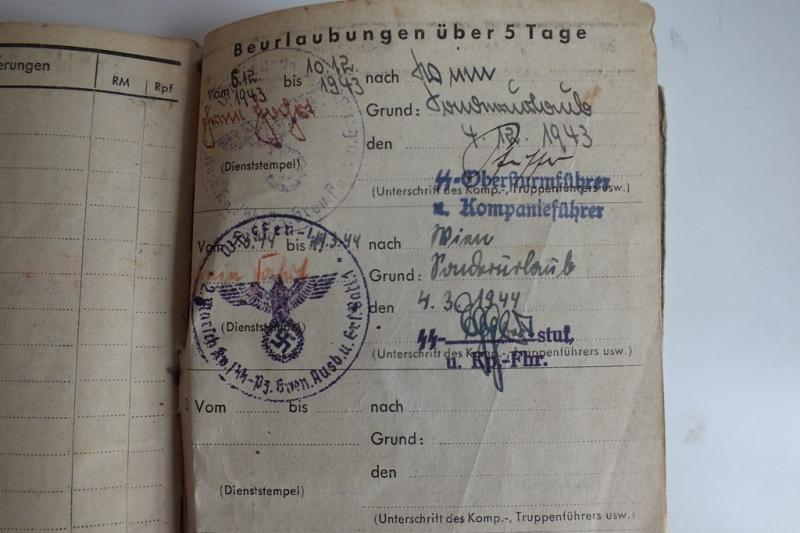 erungen
RM
Rpf
Beurlaubungen über 5 Tage
Vom 6.12. 1943 bis 10.12. 1943 nach
Grund: Sonderurlaub
den 4. 12. 1943
(Dienststempel)
SS-Obersturmführer
(Unterschrift des Komp.-, Truppenführers usw.)
u. Kompanieführer
Vom 44 bis 3.44 nach Wien
Grund: Sonderurlaub
den 4. 3. 1944
(Dienststempel)
Waffen-SS
2. Marsch Kp. SS-Pz. Gren. Ausb. u. Ers. Batl.
SS- stuf.
(Unterschrift des Komp.-, Truppenführers usw.)
u. Kp.-Fhr.
3. Vom bis nach
Grund:
den
(Dienststempel)
(Unterschrift des Komp.-, Truppenführers usw.)